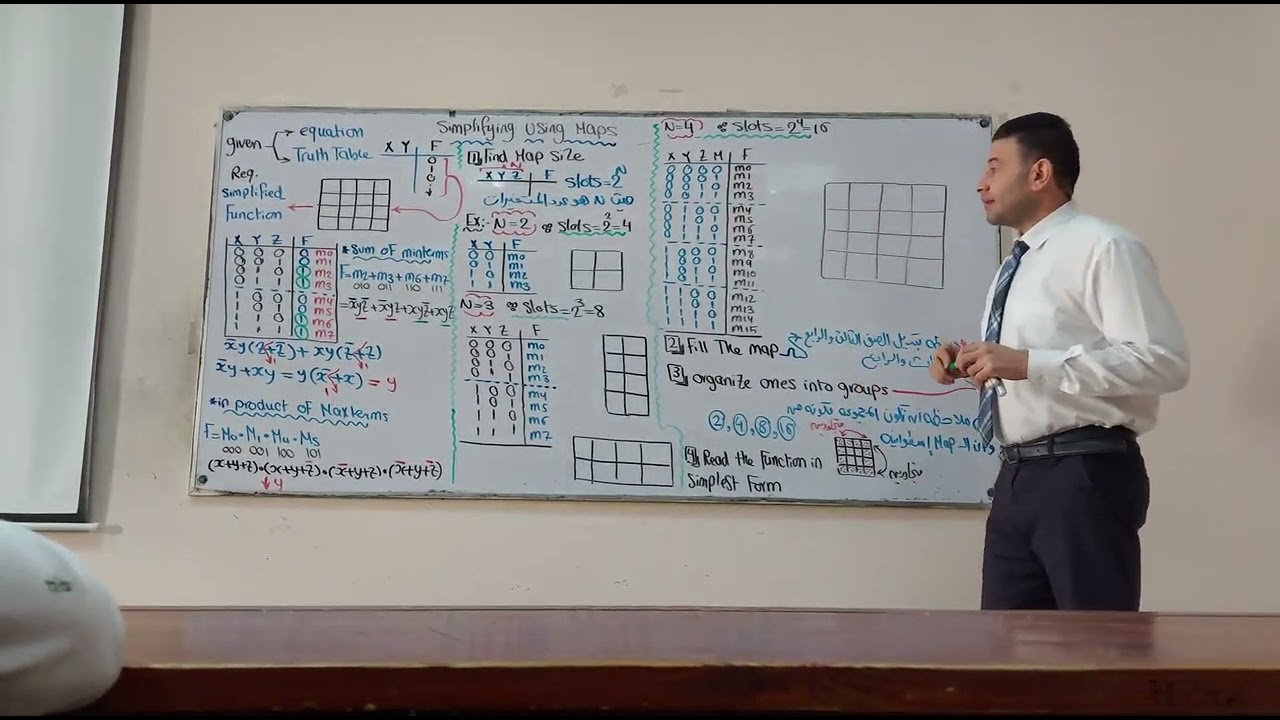 Simplifying Using Maps
given
equation
Truth Table
X Y F
0
1
0
Req.
simplified
Function
X Y Z F
0 0 0 0 m0
0 0 1 0 m1
0 1 0 1 m2
0 1 1 1 m3
1 0 0 0 m4
1 0 1 0 m5
1 1 0 1 m6
1 1 1 1 m7
* Sum of minterms
F=m2+m3+m6+m7
010 011 110 111
=x̄yz̄+x̄yz+xyz̄+xyz
x̄y(z+z̄)+xy(z+z̄)
x̄y+xy=y(x̄+x)=y
*in product of Maxterms
F=M0·M1·M4·M5
000 001 100 101
(x+y+z)·(x+y+z̄)·(x̄+y+z)·(x̄+y+z̄)
y
1 Find Map size
N
X Y Z F
slots=2^N
حيث N هو عدد المتغيرات
Ex:- N=2 slots=2^2=4
X Y F
0 0 m0
0 1 m1
1 0 m2
1 1 m3
N=3 slots=2^3=8
X Y Z F
0 0 0 m0
0 0 1 m1
0 1 0 m2
0 1 1 m3
1 0 0 m4
1 0 1 m5
1 1 0 m6
1 1 1 m7
N=4 slots=2^4=16
X Y Z M F
0 0 0 0 m0
0 0 0 1 m1
0 0 1 0 m2
0 0 1 1 m3
0 1 0 0 m4
0 1 0 1 m5
0 1 1 0 m6
0 1 1 1 m7
1 0 0 0 m8
1 0 0 1 m9
1 0 1 0 m10
1 0 1 1 m11
1 1 0 0 m12
1 1 0 1 m13
1 1 1 0 m14
1 1 1 1 m15
2 Fill The map
تبديل الصف الثالث والرابع
والرابع
3 organize ones into groups
2, 4, 8, 16
Map
4 Read the Function in
Simplest Form